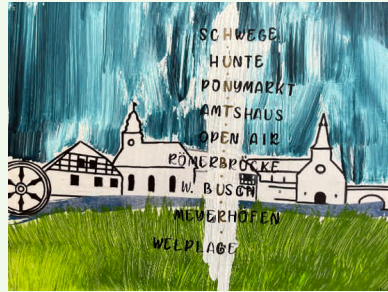 SCHWEGE
HUNTE
PONYMARKT
AMTSHAUS
OPEN AIR
RÖMERBRÜCKE
W. BUSCH
MEYERHÖFEN
WELPLAGE